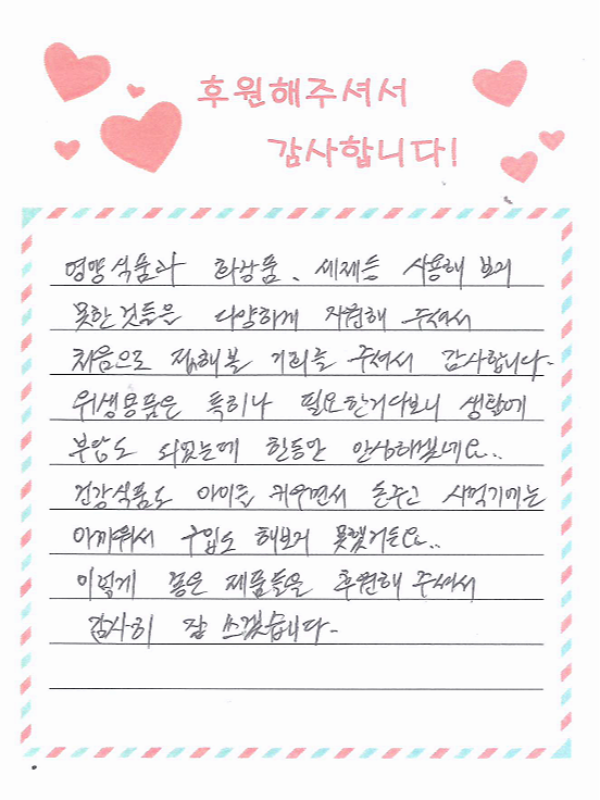 후원해주셔서
감사합니다!
영양식품과 화장품、세제등 사용해 보지
못한것들은 다양하게 지원해 주셔서
처음으로 접해볼 기회를 주셔서 감사합니다-
위생용품은 특히나 필요한거다보니 생활에
부담도 되었는데 한동안 안심하겠네요..
건강식품도 아이들 키우면서 돈주고 사먹기에는
아까워서 구입도 해보지 못했거든요..
이렇게 좋은 제품들을 후원해 주셔서
감사히 잘 쓰겠습니다-